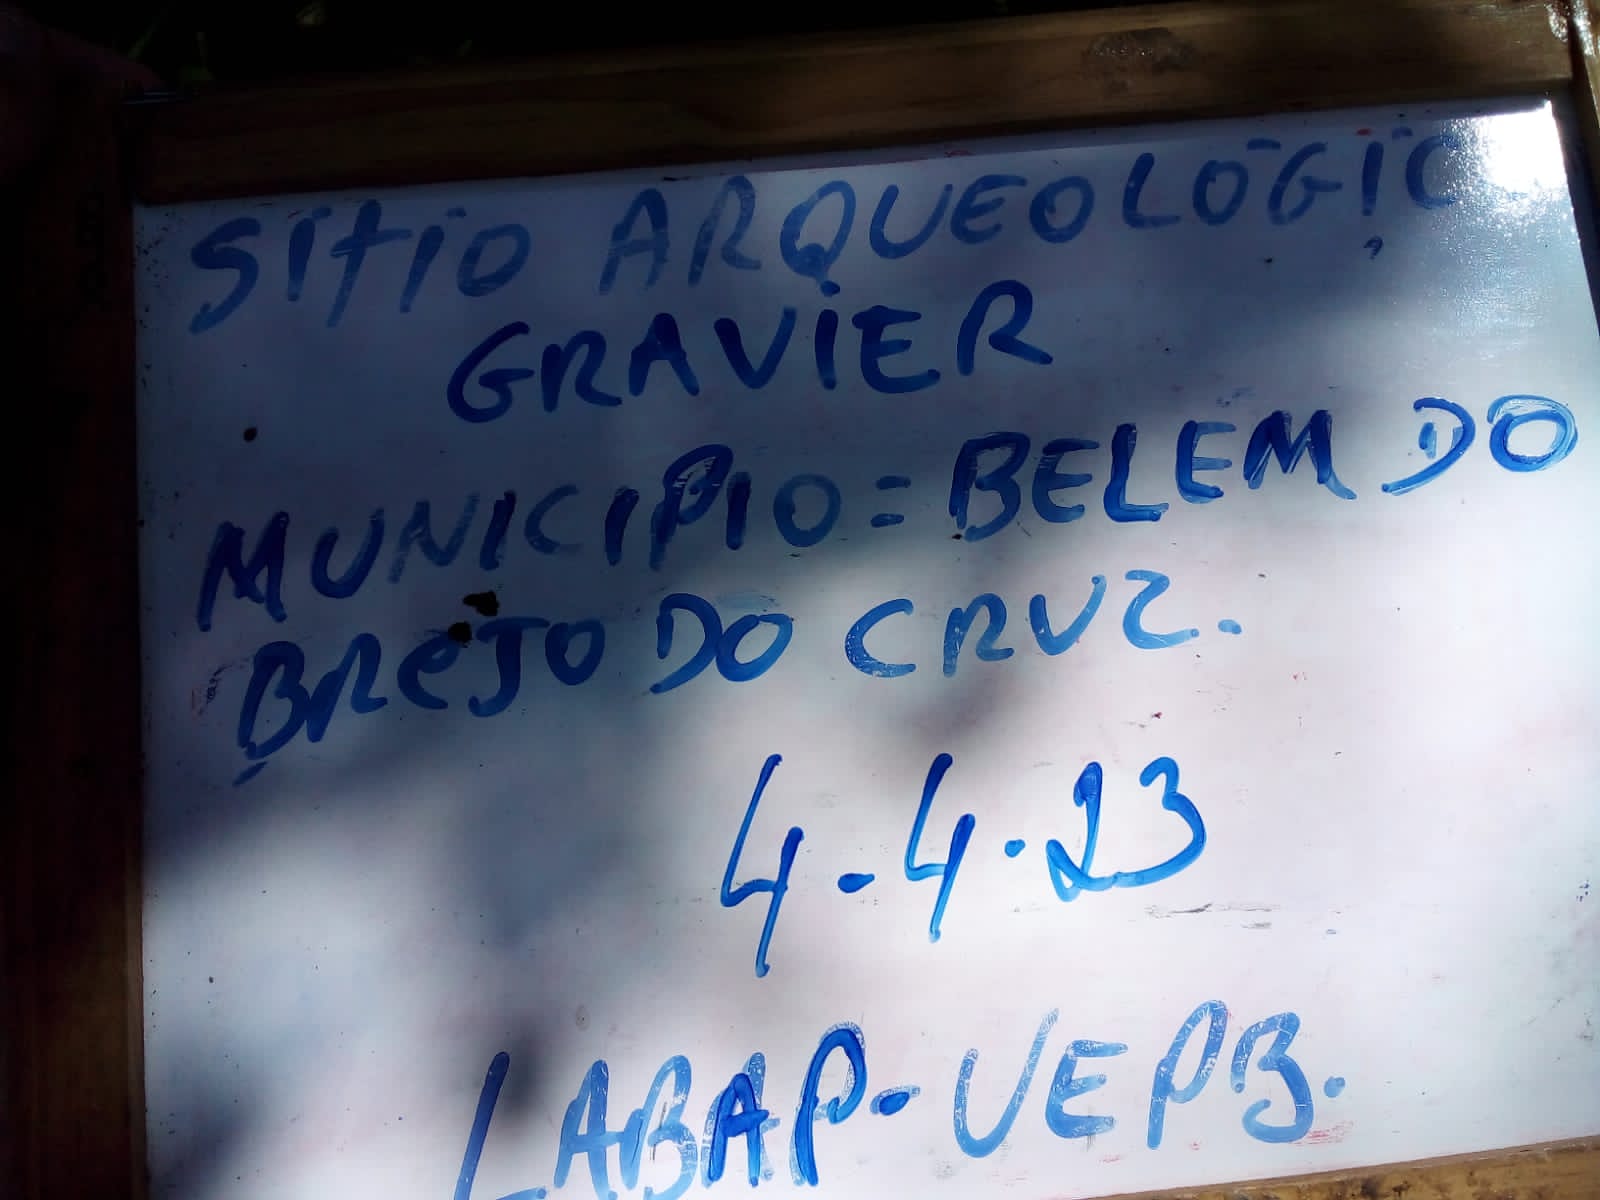 SÍTIO ARQUEOLÓGIC
GRAVIER
MUNICIPIO = BELEM DO
BREJO DO CRUZ.
4.4.23
LABAP-UEPB.